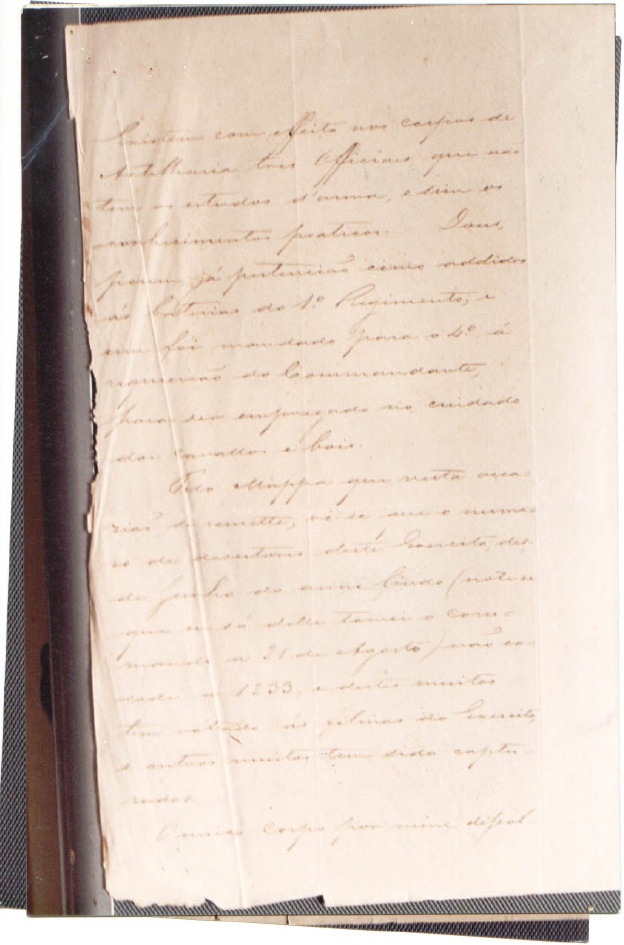 Existem com effeito nos corpos de
Artilharia tres Officiaes que não
tem os estudos d'arma, e sim os
conhecimentos praticos. Dous,
porem, já pertencião como addidos
ás baterias do 1º Regimento, e
um foi mandado para o 4º, á
requisição do Commandante,
para ser empregado no cuidado
dos cavallos e bois.
Pelo Mappa que nesta occa-
zião se remette, vê-se que o nume-
ro de desertores deste Exercito, des-
de Junho do anno findo (note-se
que eu só delle tomei o com-
mando a 21 de Agosto) não ex-
cede a 1233, e destes muitos
tem voltado ás fileiras do Exercito,
e outros muitos tem sido captu-
rados.
O unico corpo por mim dissol-